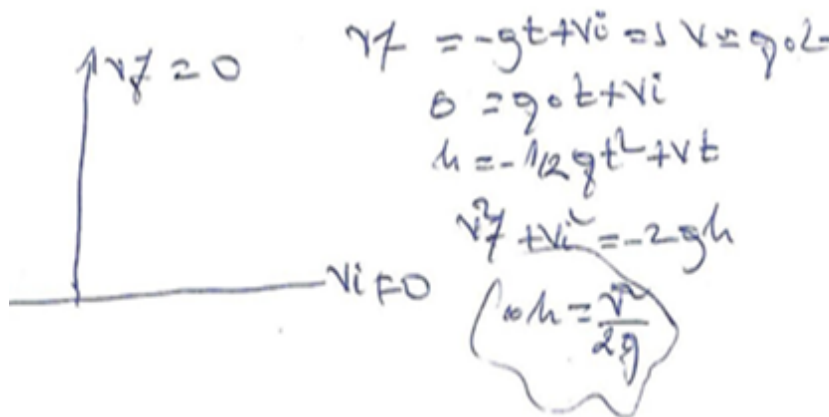 vf = 0
vi ≠ 0
vf = -gt + vi => v = g.t
0 = g.t + vi
h = -1/2 gt² + vt
v²f + vi² = -2gh
∞ h = v²/2g